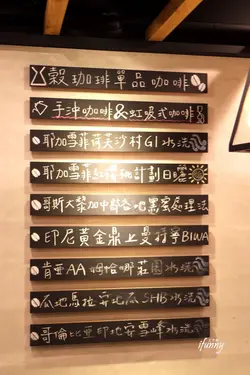 穀珈琲單品咖啡
手沖咖啡&虹吸式咖啡
耶加雪菲荷芙沙村G1水洗
耶加雪菲紅櫻桃計劃日曬
哥斯大黎加中部谷地黑蜜處理法
印尼黃金鼎上曼特寧
肯亞AA 莊園水洗
瓜地馬拉安地瓜SHB水洗
哥倫比亞 雪峰水洗
ifunny